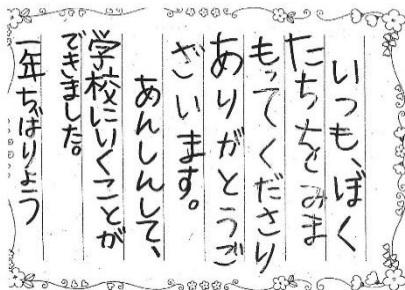 いつも、ぼく
たちをみま
もってくださり
ありがとうご
ざいます。
あんしんして、
学校にいくことが
できました。
一年ちばりょう